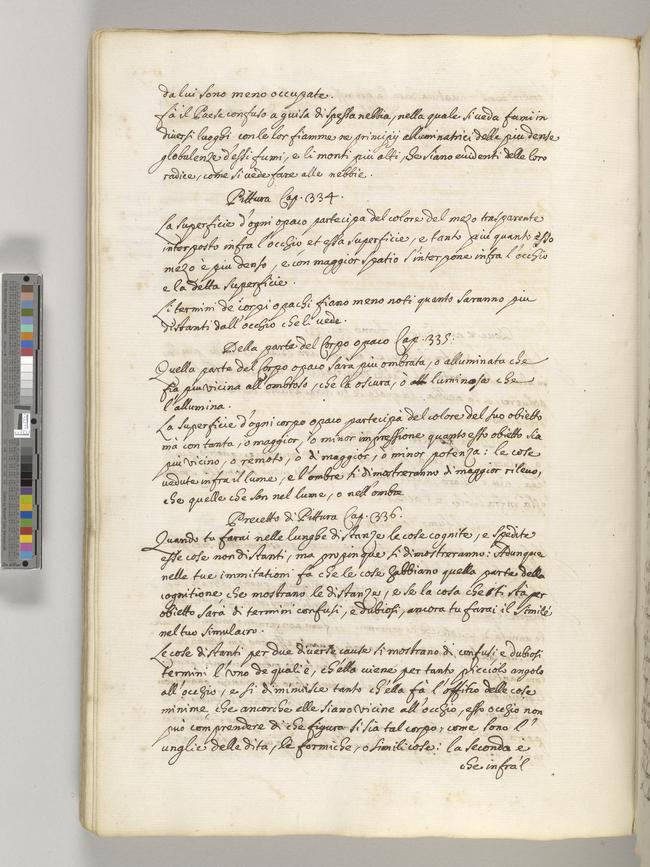 da lui sono meno occupate.
Fà il Paese confuso a guisa di spessa nebbia, nella quale si veda fumi in
diversi luoghi con le lor fiamme ne principij alluminatrici della piu dense
globulenze d'essi fumi, e li monti piu alti, che siano evidenti delle loro
radice, come si vede fare alle nebbie.
Pittura Cap. 334.
La superficie d'ogni opaco partecipa del colore del mezo trasparente
interposto infra l'occhio et essa superficie, e tanto più quanto esso
mezo è piu denso, e con maggior spatio s'interpone infra l'occhio
e la detta superficie.
Li termini de corpi opachi fiano meno noti quanto saranno piu
distanti dall'occhio che li vede.
Della parte del Corpo opaco Cap. 335.
Quella parte del Corpo opaco sarà piu ombrata, o alluminata che
fia piu vicina all'ombroso, che la oscura, ò luminoso che
l'allumina.
La superficie d'ogni corpo opaco partecipa del colore del suo obietto
mà con tanta, o maggior, ò minor impressione quanto esso obietto sia
piu vicino, o remoto, ò di maggior, ò minor potenza: le cose
vedute infra il lume, e l'ombre si dimostreranno di maggior rilevo,
che quelle che son nel lume, o nell'ombre
Precetto di Pittura Cap. 336.
Quando tu farai nelle lunghe distanze le cose cognite, e spedite
esse cose non distanti, ma propinque si dimostreranno: Adunque
nelle tue immitationi fà che le cose habbiano quella parte della
cognitione che mostrano le distanze, e se la cosa che ti stà per
obietto sarà di termini confusi, e dubiosi, ancora tu farai il simile
nel tuo simulacro.
Le cose distanti per due diverse cause si mostrano di confusi e dubiosi
termini l'uno de quali è, ch'ella viene per tanto piccolo angolo
all'occhio, e si diminuisce tanto ch'ella fà l'offitio delle cose
minime che ancorche elle siano vicine all'occhio, esso occhio non
può comprendere di che figura si sia tal corpo, come sono l'
unglie delle dita, le formiche, o simili cose: la seconda è
che infrà l